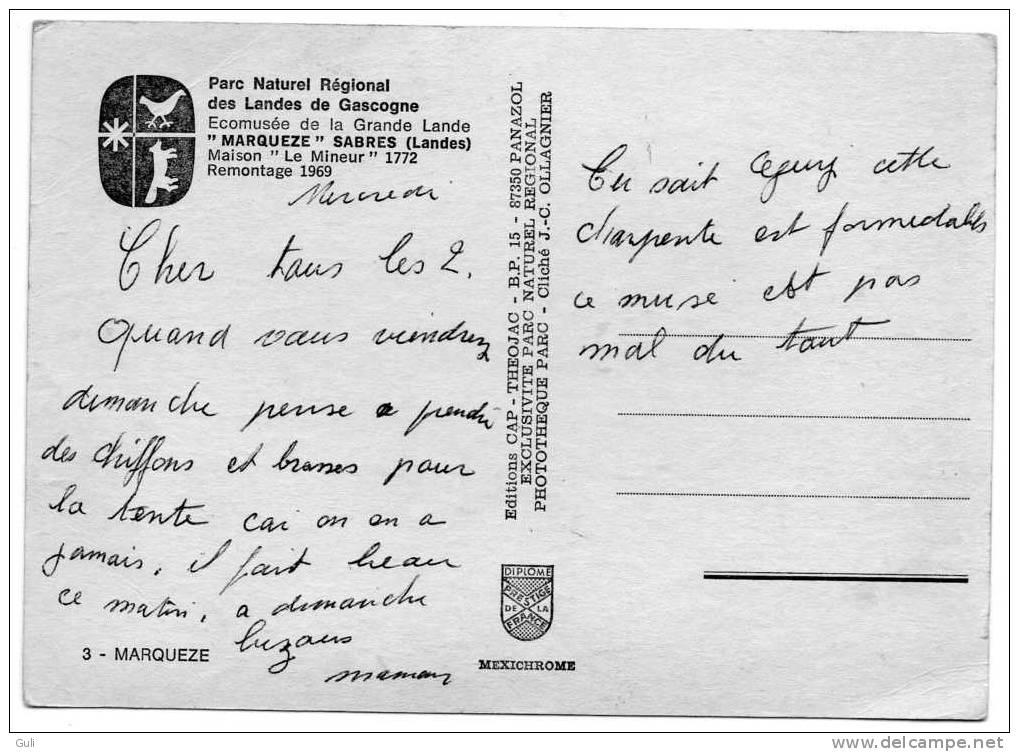 Parc Naturel Régional
des Landes de Gascogne
Ecomusée de la Grande Lande
"MARQUEZE" SABRES (Landes)
Maison "Le Mineur" 1772
Remontage 1969
Mercredi
Cher tous les 2.
Quand vous viendrez
dimanche pense a prendre
des chiffons et brosses pour
la tente car on en a
jamais, il fait beau
ce matin, a dimanche
bizous
maman
3 - MARQUEZE
Editions CAP - THEOJAC - B.P. 15 - 87350 PANAZOL
EXCLUSIVITE PARC NATUREL REGIONAL
PHOTOTHEQUE PARC - Cliché J.-C. OLLAGNIER
DIPLOME
PRESTIGE
DE LA
FRANCE
MEXICHROME
Tu sait cette
charpente est formidables
ce muse est pas
mal du tout
Guli
delcampe.net